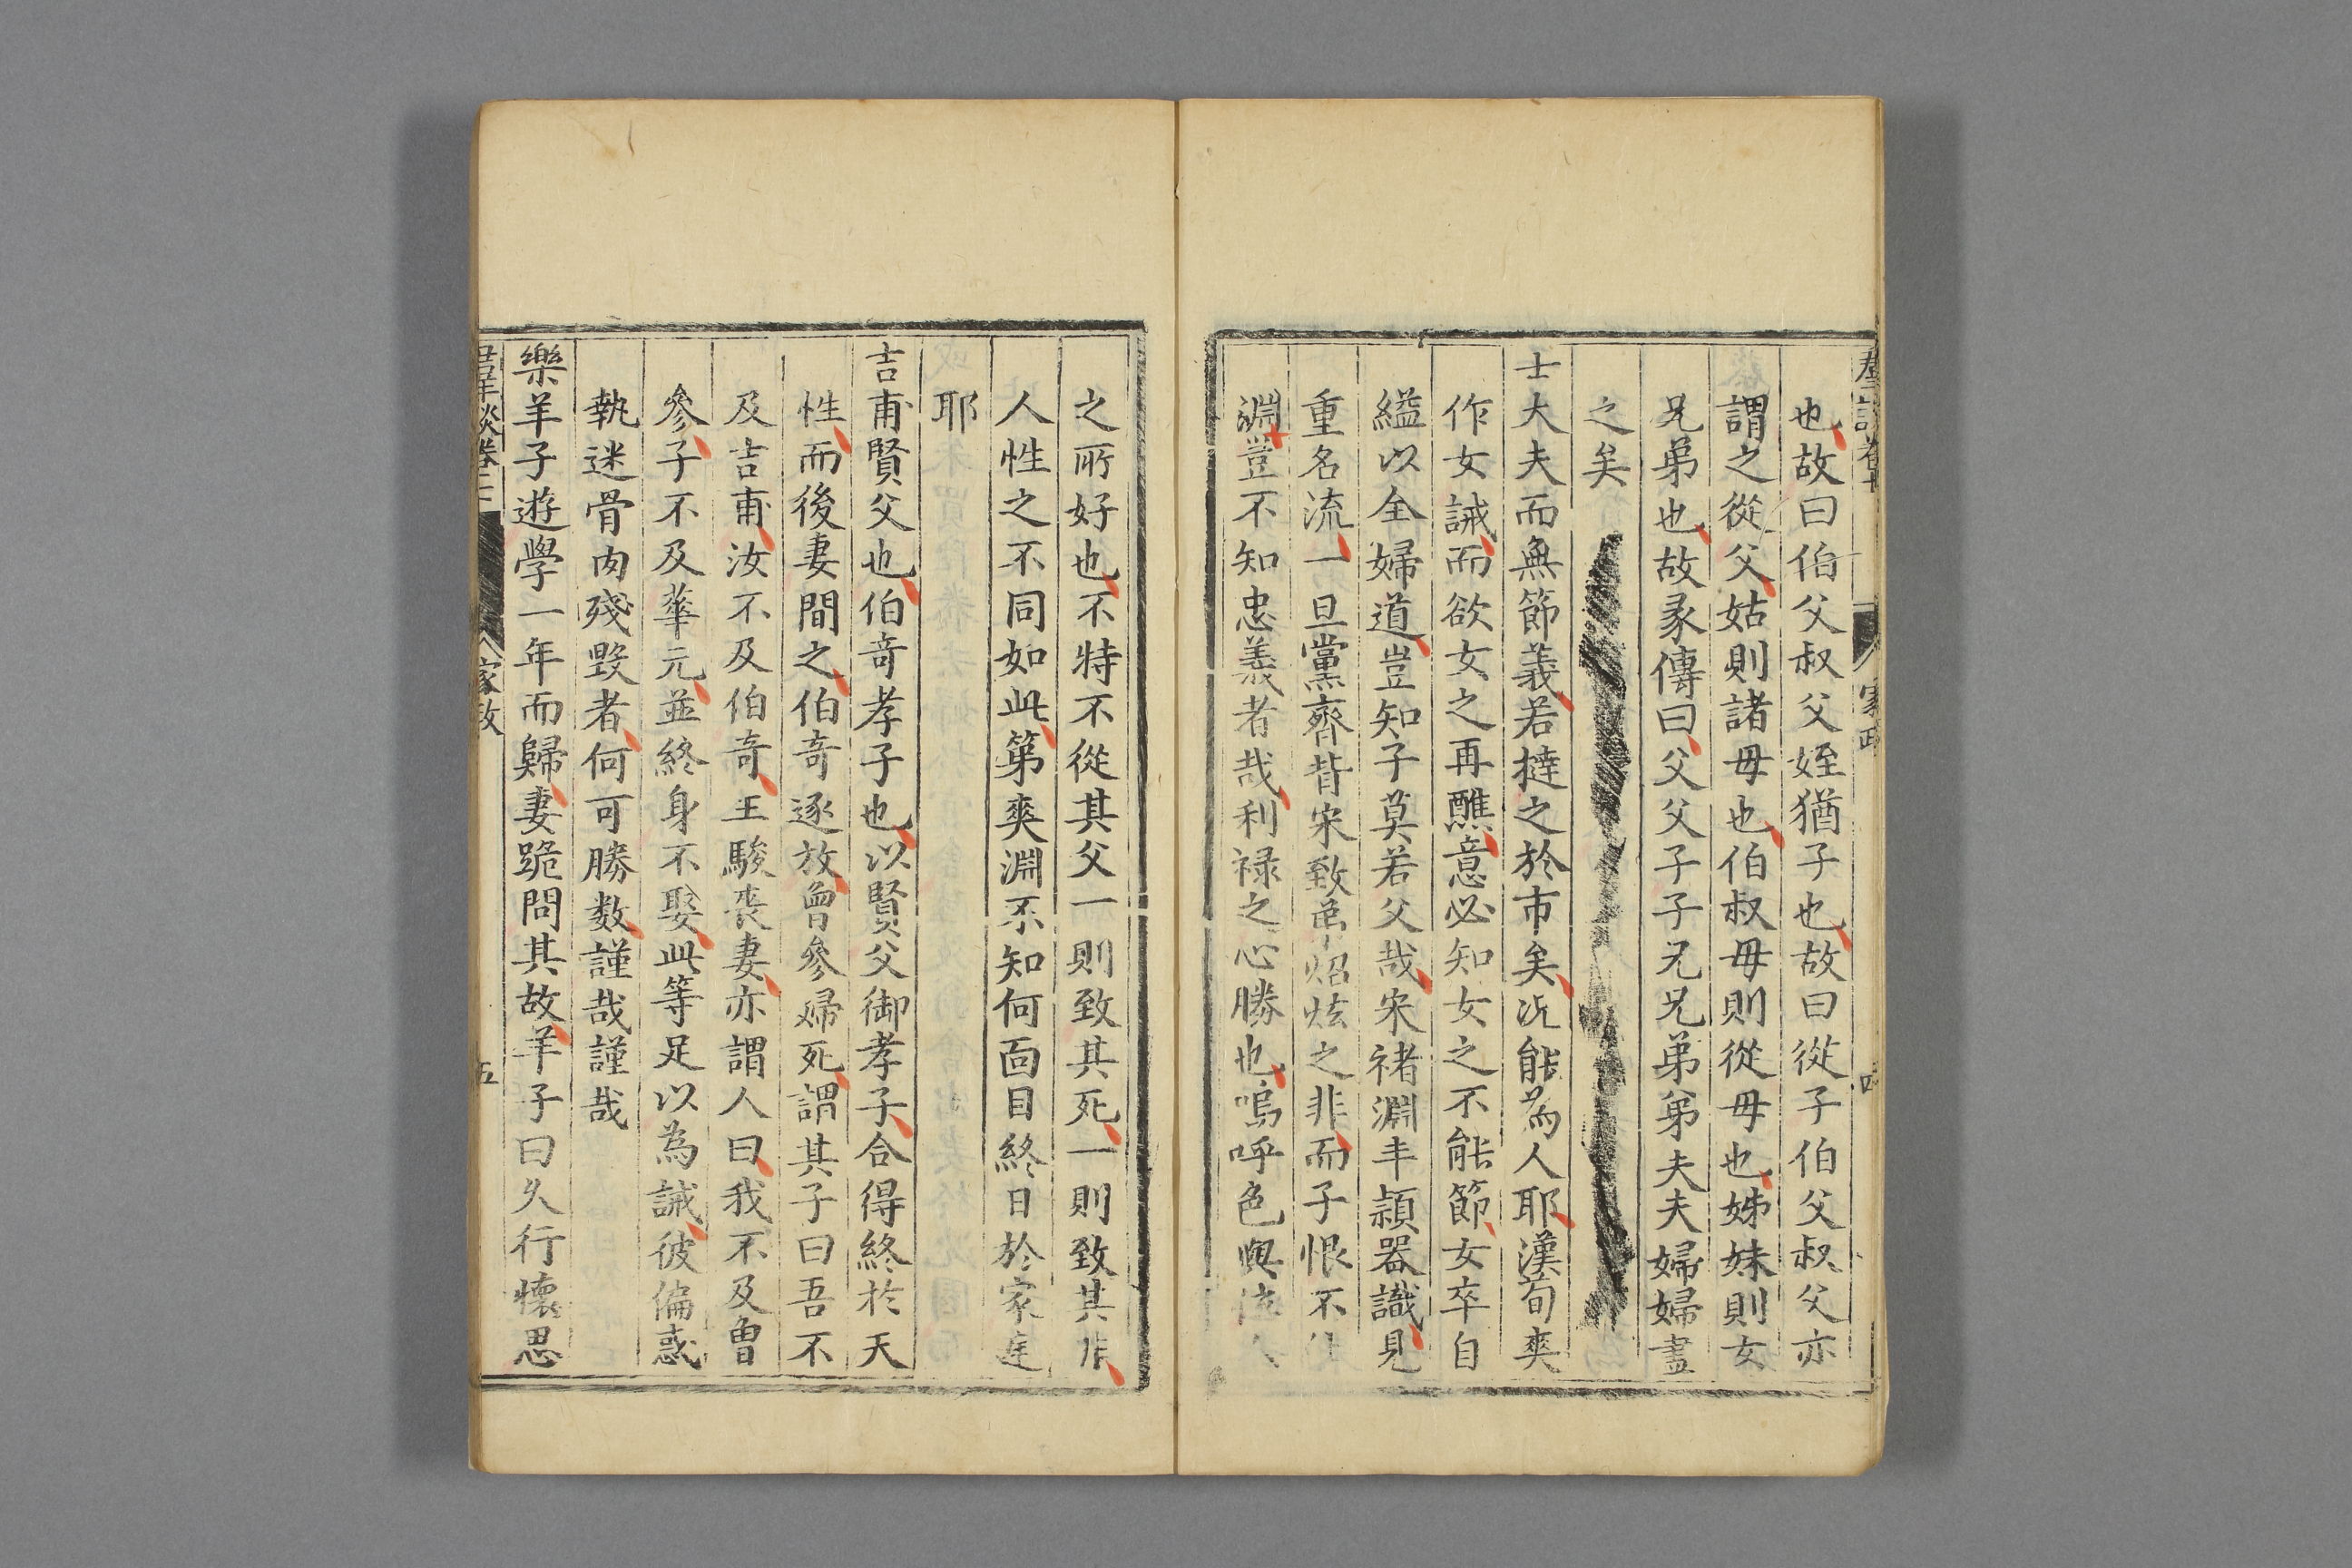 也故曰伯父叔父姪猶子也故曰從子伯父叔父亦
謂之從父姑則諸毋也伯叔毋則從毋也姊妹則女
兄弟也故家傳曰父父子子兄兄弟弟夫夫婦婦盡
之矣
士大夫而無節義若撻之於市矣况能為人耶漢荀爽
作女誡而欲女之再醮意必知女之不能節女卒自
縊以全婦道豈知子莫若父哉宋禇淵丰頴器識見
重名流一旦黨齊背宋致炤炫之非而子恨不
淵豈不知忠義者哉利禄之心勝也嗚呼色與
之所好也不特不從其父一則致其死一則致其非
人性之不同如此第爽淵不知何面目終日於家庭
耶
吉甫賢父也伯奇孝子也以賢父御孝子合得終於天
性而後妻間之伯奇逐放曾參婦死謂其子曰吾不
及吉甫汝不及伯奇王駿丧妻亦謂人曰我不及曾
參子不及華元並終身不娶此等足以為誡彼偏惑
執迷骨肉殘毀者何可勝数謹哉謹哉
樂羊子遊學一年而歸妻跪問其故羊子曰久行懷思
群談卷二 家政 五